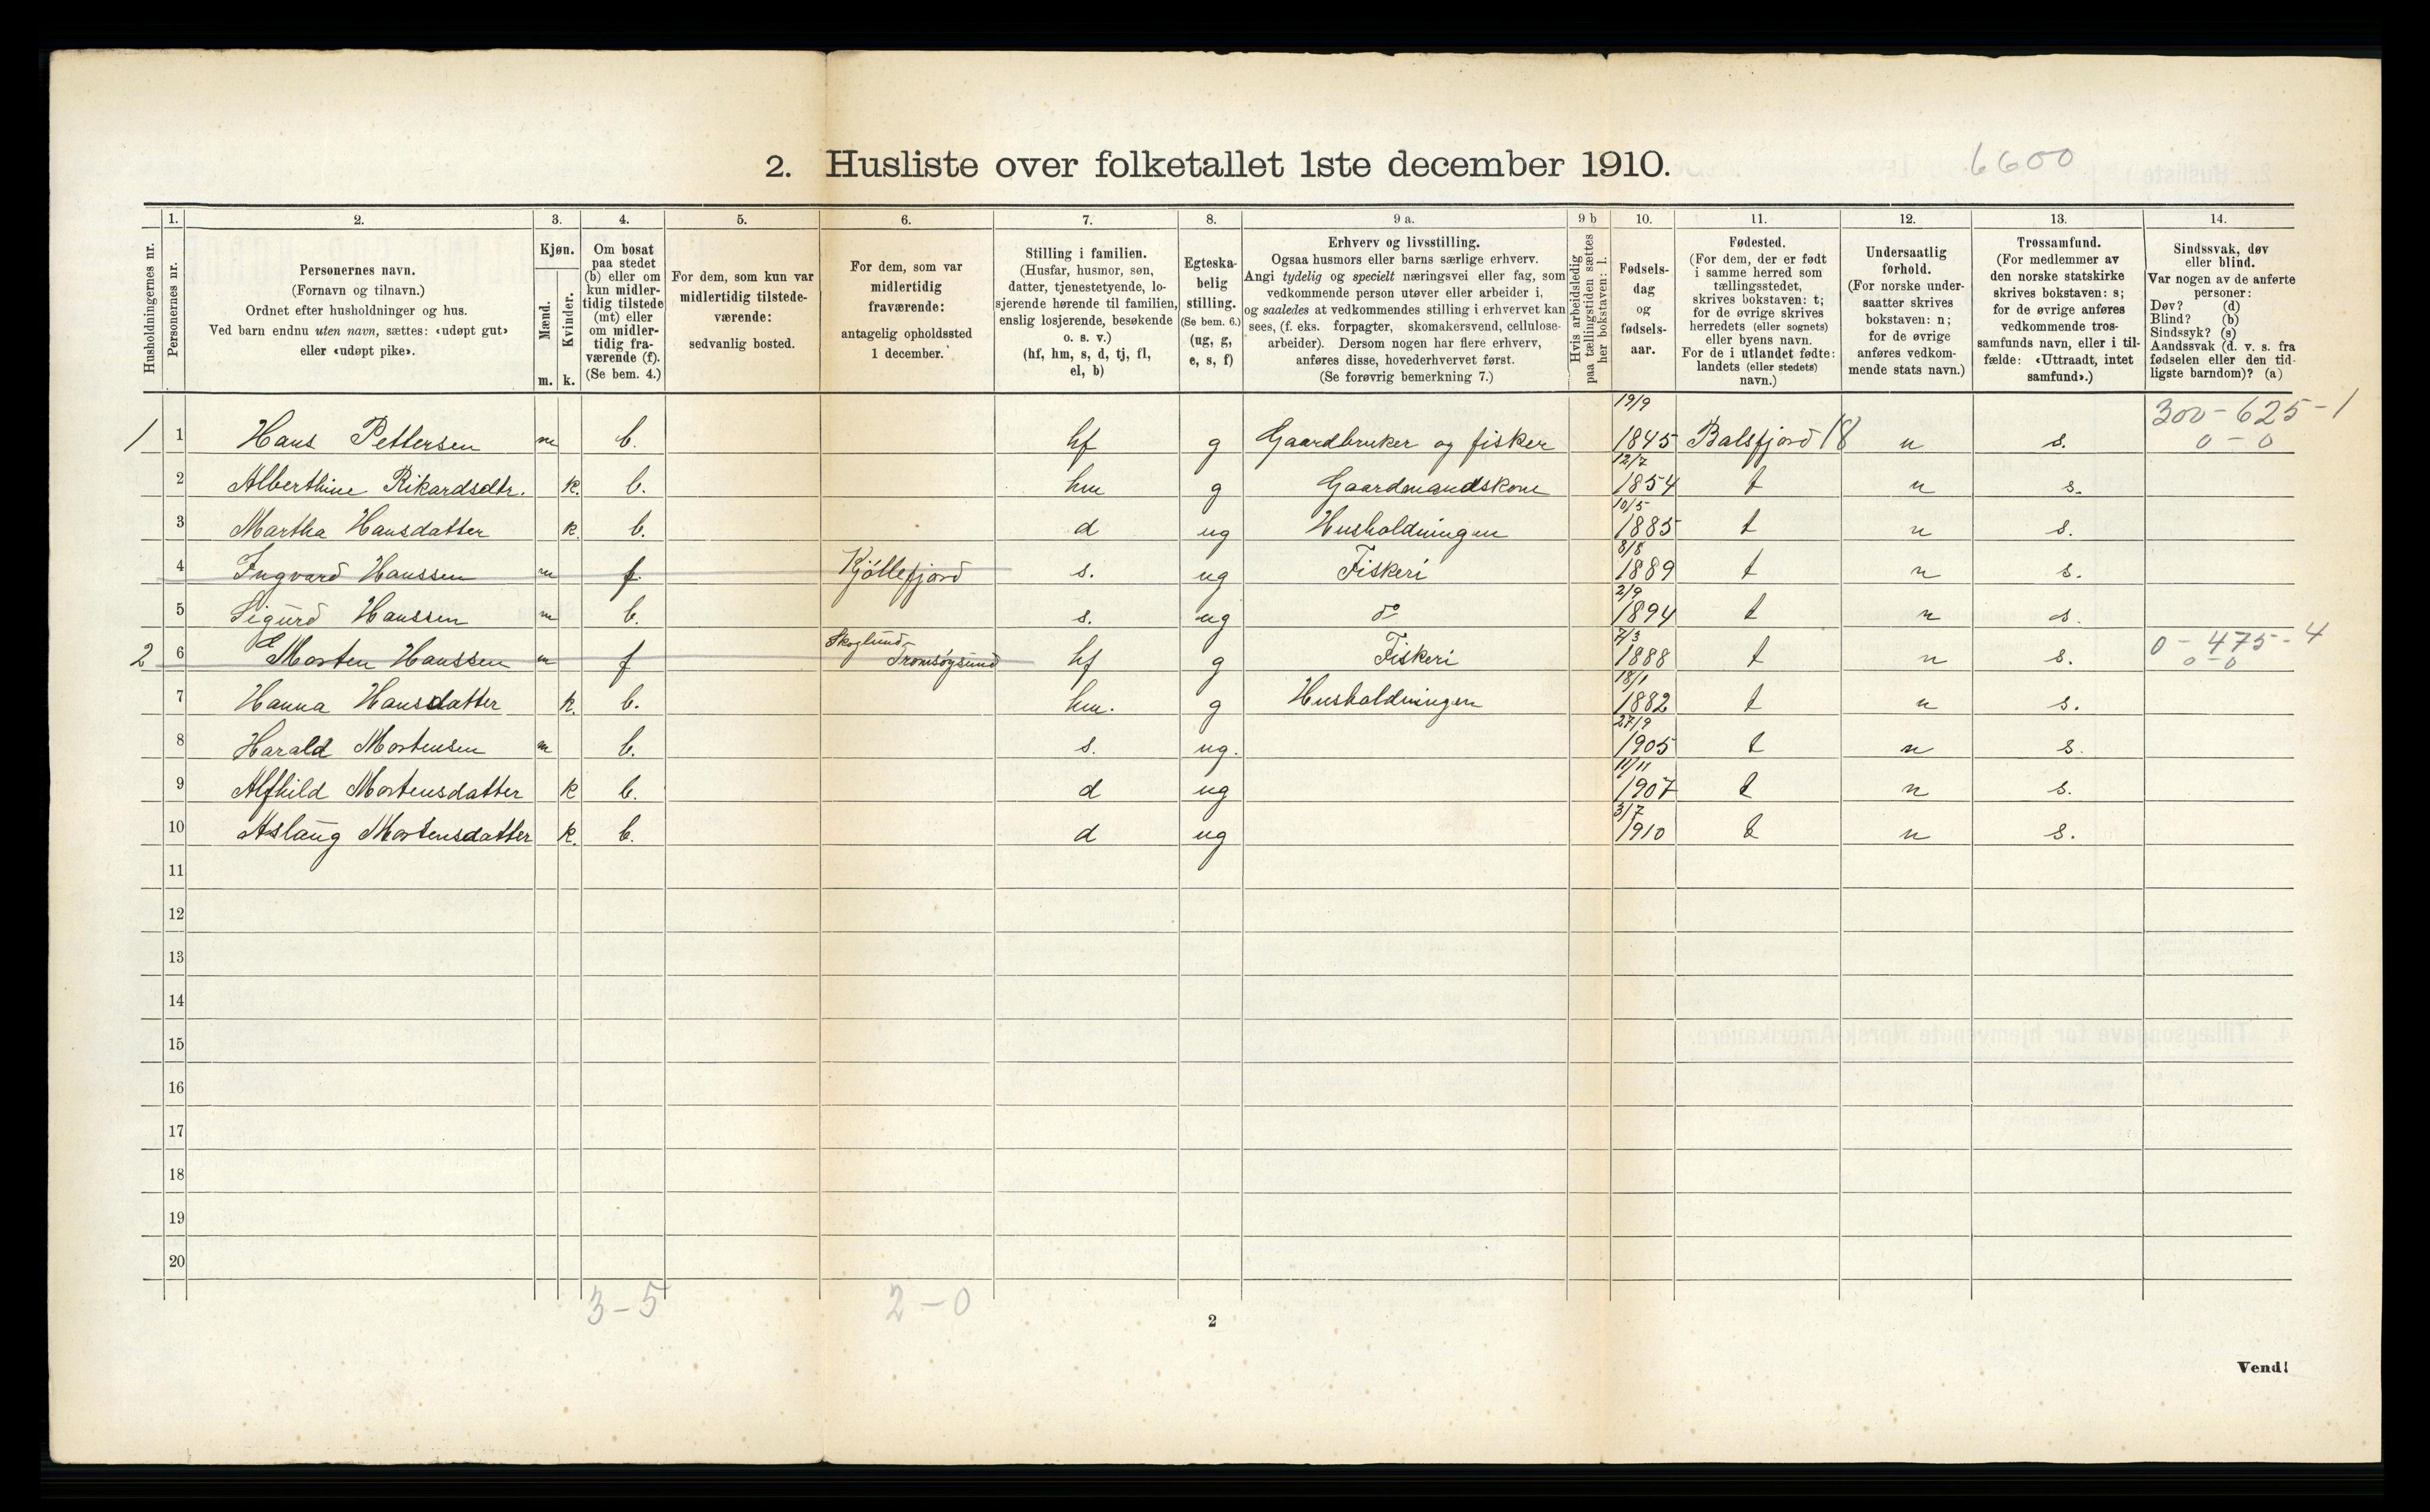 2. Husliste over folketallet 1ste december 1910.
6600
Husholdningernes nr.
1.
Personernes nr.
2.
Personernes navn.
(Fornavn og tilnavn.)
Ordnet efter husholdninger og hus.
Ved barn endnu uten navn, sættes: «udøpt gut»
eller «udøpt pike».
3.
Kjøn.
Mænd.
Kvinder.
m. k.
4.
Om bosat
paa stedet
(b) eller om
kun midler-
tidig tilstede
(mt) eller
om midler-
tidig fra-
værende (f).
(Se bem. 4.)
5.
For dem, som kun var
midlertidig tilstede-
værende:
sedvanlig bosted.
6.
For dem, som var
midlertidig
fraværende:
antagelig opholdssted
1 december.
7.
Stilling i familien.
(Husfar, husmor, søn,
datter, tjenestetyende, lo-
sjerende hørende til familien,
enslig losjerende, besøkende
o. s. v.)
(hf, hm, s, d, tj, fl,
el, b)
8.
Egteska-
belig
stilling.
(Se bem. 6.)
(ug, g,
e, s, f)
9 a.
Erhverv og livsstilling.
Ogsaa husmors eller barns særlige erhverv.
Angi tydelig og specielt næringsvei eller fag, som
vedkommende person utøver eller arbeider i,
og saaledes at vedkommendes stilling i erhvervet kan
sees, (f. eks. forpagter, skomakersvend, cellulose-
arbeider). Dersom nogen har flere erhverv,
anføres disse, hovederhvervet først.
(Se forøvrig bemerkning 7.)
9 b
Hvis arbeidsledig
paa tællingstiden sættes
her bokstaven: l.
10.
Fødsels-
dag
og
fødsels-
aar.
11.
Fødested.
(For dem, der er født
i samme herred som
tællingsstedet,
skrives bokstaven: t;
for de øvrige skrives
herredets (eller sognets)
eller byens navn.
For de i utlandet fødte:
landets (eller stedets)
navn.)
12.
Undersaatlig
forhold.
(For norske under-
saatter skrives
bokstaven: n;
for de øvrige
anføres vedkom-
mende stats navn.)
13.
Trossamfund.
(For medlemmer av
den norske statskirke
skrives bokstaven: s;
for de øvrige anføres
vedkommende tros-
samfunds navn, eller i til-
fælde: «Uttraadt, intet
samfund».)
14.
Sindssvak, døv
eller blind.
Var nogen av de anførte
personer:
Døv? (d)
Blind? (b)
Sindssyk? (s)
Aandssvak (d. v. s. fra
fødselen eller den tid-
ligste barndom)? (a)
1 1 Hans Pettersen m b. hf g Gaardbruker og fisker 19/9 1845 Balsfjord 18 n s. 300-625-1 0-0
2 Alberthine Rikardsdtr. k. b. hm g Gaardmandskone 12/7 1854 t n s.
3 Martha Hansdatter k. b. d ug Husholdningen 10/5 1885 t n s.
4 Ingvard Hanssen m f. Kjöllefjord s. ug Fiskeri 8/8 1889 t n s.
5 Sigurd Hanssen m b. s. ug do 2/9 1894 t n s.
2 6 Morten Hanssen m f Skoglund- Tromsöysund hf g Fiskeri 7/3 1888 t n s. 0-475-4 0-0
7 Hanna Hansdatter k. b. hm. g Husholdningen 18/1 1882 t n s.
8 Harald Mortensen m b. s. ug. 27/9 1905 t n s.
9 Alfhild Mortensdatter k b. d ug 11/11 1907 t n s.
10 Aslaug Mortensdatter k. b. d ug 3/7 1910 t n s.
11
12
13
14
15
16
17
18
19
20
3-5 2-0
2
Vend!